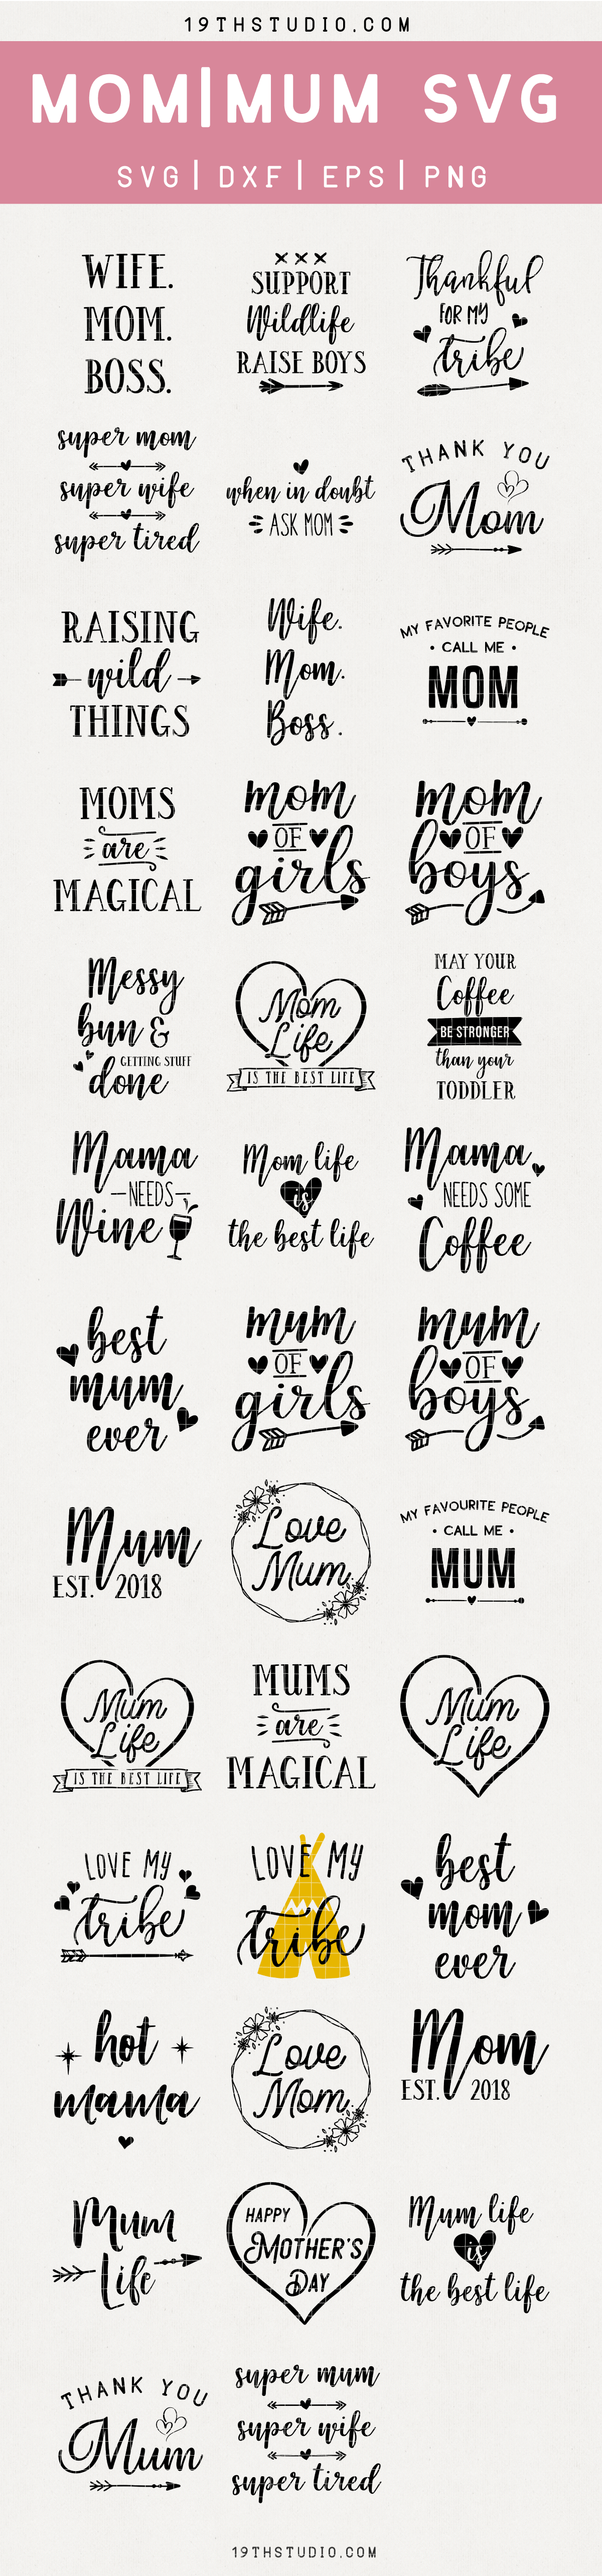 19THSTUDIO.COM
MOM|MUM SVG
SVG| DXF| EPS| PNG
WIFE.
MOM.
BOSS.
XXX
SUPPORT
Wildlife
RAISE BOYS
Thankful
FOR MY
tribe
super mom
super wife
super tired
when in doubt
ASK MOM
THANK YOU
Mom
RAISING
wild
THINGS
Wife.
Mom.
Boss.
MY FAVORITE PEOPLE
• CALL ME •
MOM
MOMS
are
MAGICAL
mom
OF
girls
mom
OF
boys
Messy
bun &
GETTING STUFF
done
Mom
Life
IS THE BEST LIFE
MAY YOUR
Coffee
BE STRONGER
than your
TODDLER
Mama
NEEDS
Wine
Mom life
is
the best life
Mama
NEEDS SOME
Coffee
best
mum
ever
mum
OF
girls
mum
OF
boys
Mum
EST. 2018
Love
Mum
MY FAVOURITE PEOPLE
• CALL ME •
MUM
Mum
Life
IS THE BEST LIFE
MUMS
are
MAGICAL
Mum
Life
LOVE MY
tribe
LOVE MY
tribe
best
mom
ever
hot
mama
Love
Mom
Mom
EST. 2018
Mum
Life
HAPPY
MOTHER'S
DAY
Mum life
is
the best life
THANK YOU
Mum
super mum
super wife
super tired
19THSTUDIO.COM